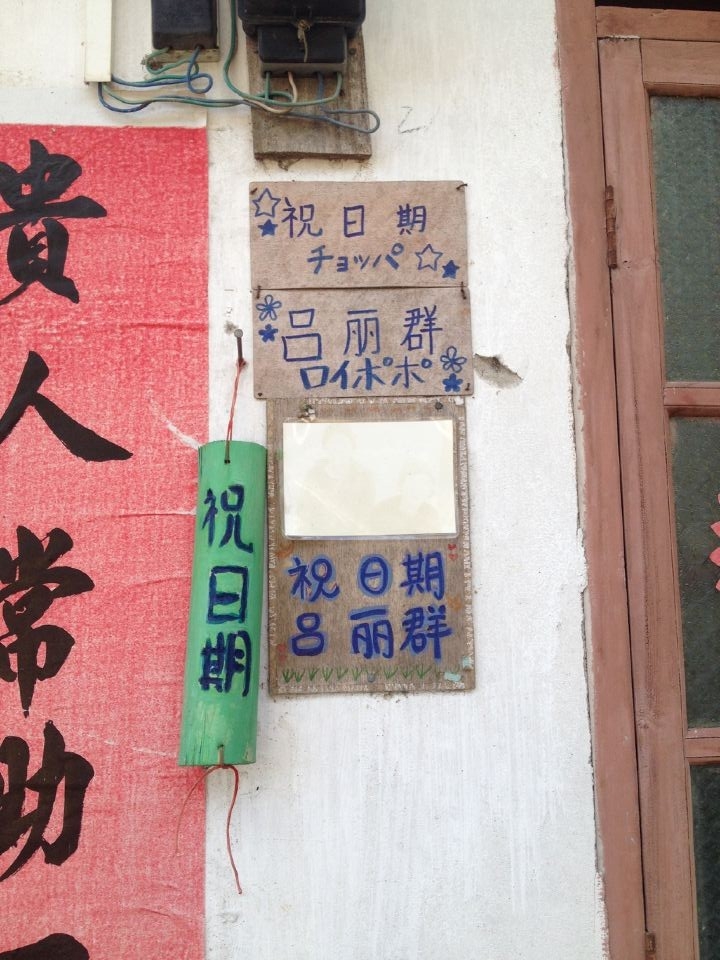 貴人常助
祝日期
チョッパ
呂丽群
ロイポポ
祝日期
祝日期
呂丽群